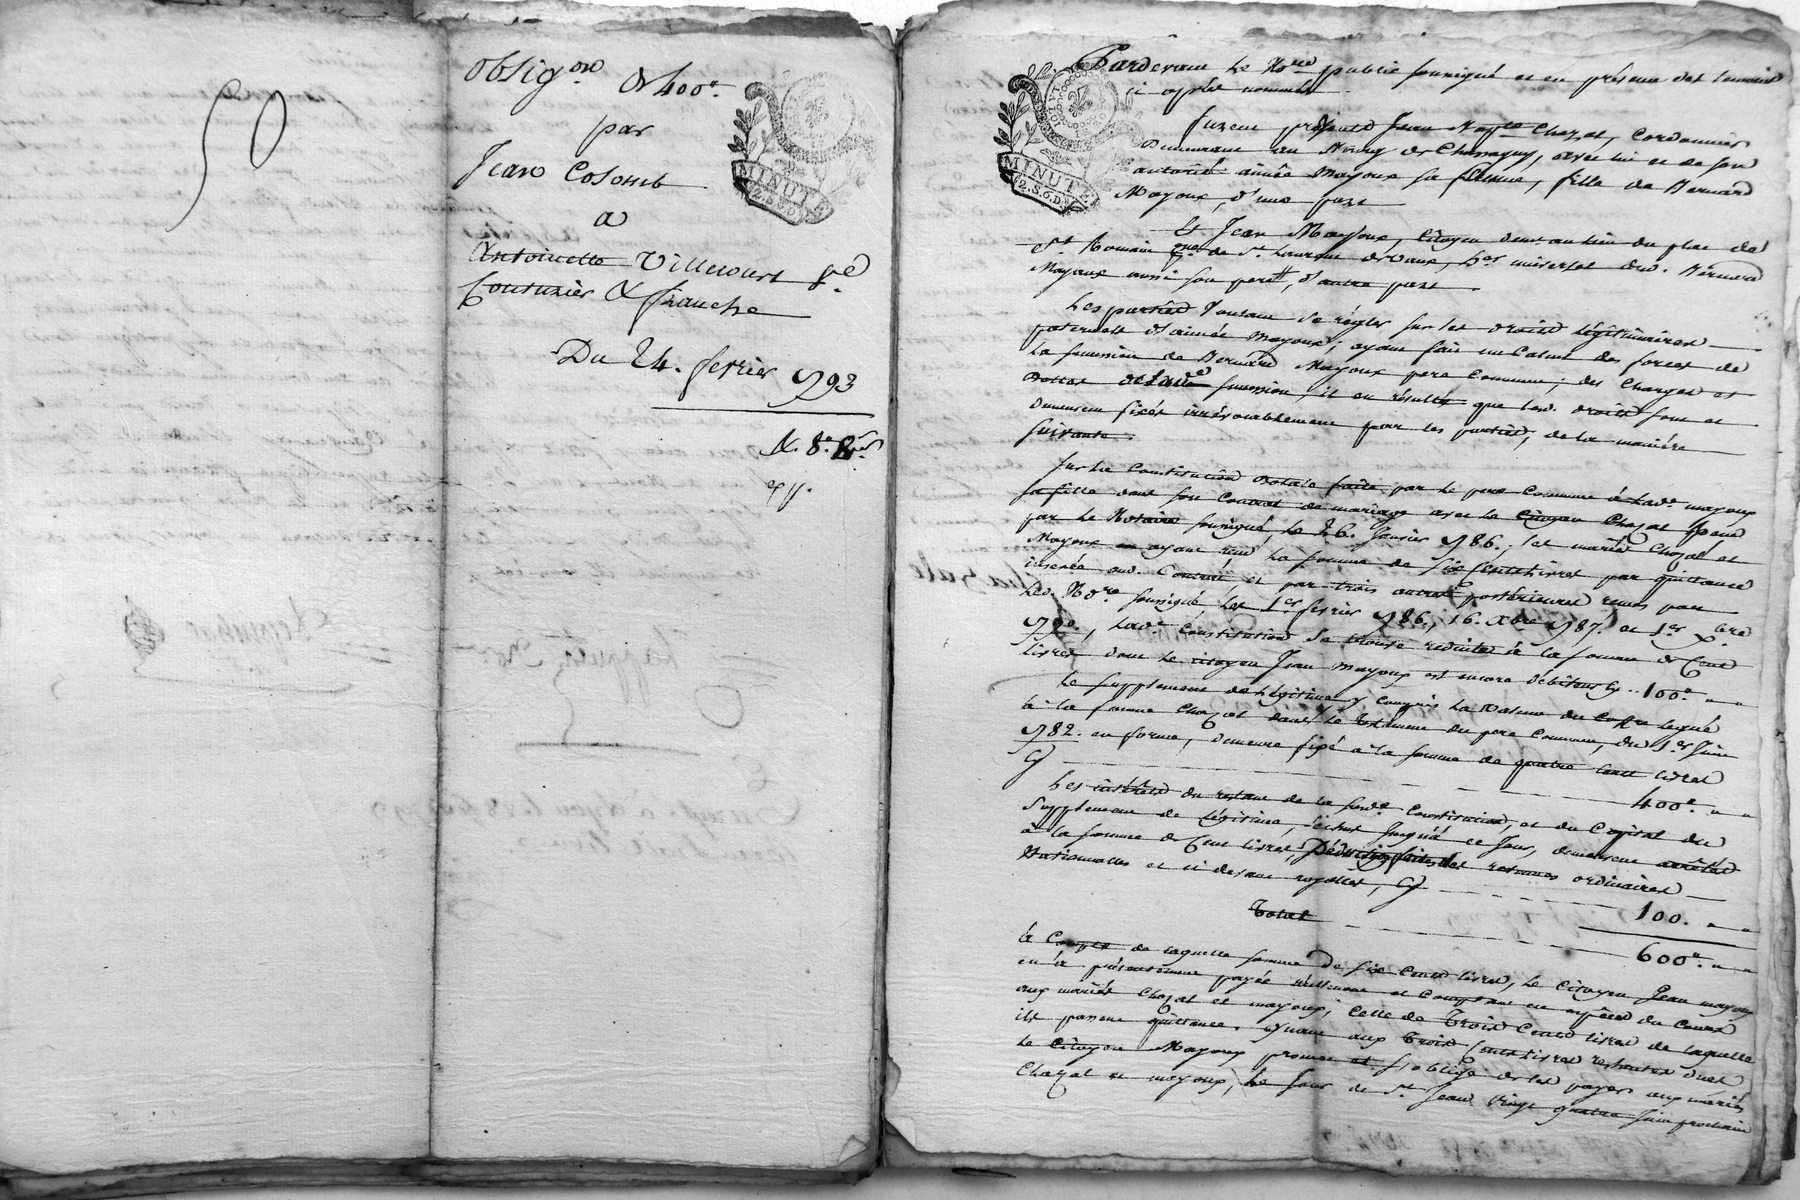 50
Oblig.on de 400.#
par
Jean Colomb
a
Antoinette Villecourt f.e
Couturier &
Du 24. fevrier 1793
MINUTE
2.S.6.D.
Pardevant le No.re public soussigné et en présence des temoins
ci après nommés.
furent présents Jean Bap.te Chazot, Cordonnier
demeurant au Bourg de Chassagny, avec lui et de son
autorité aimée Mayoux sa femme, fille de Bernard
Mayoux, d'une part
Et Jean Mayoux, Citoyen dem.t au lieu du plat de
S.t Romain p.sse de S.t Laurent de Vaux, h.er universel dud. Bernard
Mayoux aussi son pere, d'autre part.
Les parties voulant se régler sur les droits légitimaires
paternels d'aimée Mayoux; ayant fait un Calcul des forces de
la succession de Bernard Mayoux pere Commun, des Charges et
dettes de lad.e succession, il en résulte que lesd. droits sont et
demeurent fixés irrévocablement par les parties, de la manière
suivante.
Sur la Constitution dotale faite par le pere Commun à lad.e mayoux
sa fille dans son Contrat de mariage avec le Citoyen Chazot reçu
par le Notaire soussigné, le 26. janvier 1786.; les mariés Chazot et
Mayoux en ayant reçu la somme de six Cents livres par quittance
insérée aud. Contrat et par trois autres postérieures reçues par
led. No.re soussigné les 1.er fevrier 1786, 16. Xbre 1787. et 1.er Xbre
1790., lad.e Constitution se trouve reduite à la somme de Cent
livres dont le citoyen Jean Mayoux est encore débiteur Cy .. 100.#
Le supplement de légitime y compris la valeur du Coffre legué
à la femme Chazot dans le testament du pere Commun, du 1.er Juin
1782. en forme, demeure fixé à la somme de quatre Cents livres
Cy 400.#
Les intérêts du restant de la susd.e Constitution, et du Capital du
Supplement de légitime, échus jusqu'à ce jour, demeurent arrêtés
à la somme de Cent livres, Déduction faite des retenues ordinaires
Nationnalles et ci devant royalles, Cy 100.
Total 600.#
à Compte de laquelle somme de six Cents livres, le Citoyen Jean mayoux
en a présentement payée réellement et Comptant en espèces du Cours
aux mariés Chazot et mayoux, Celle de Trois Cents livres de laquelle
ils passent quittance. Quant aux Trois Cents livres restantes dues
le Citoyen Mayoux promet et s'oblige de les payer aux mariés
Chazot et mayoux, le jour de S.t Jean vingt quatre Juin prochain